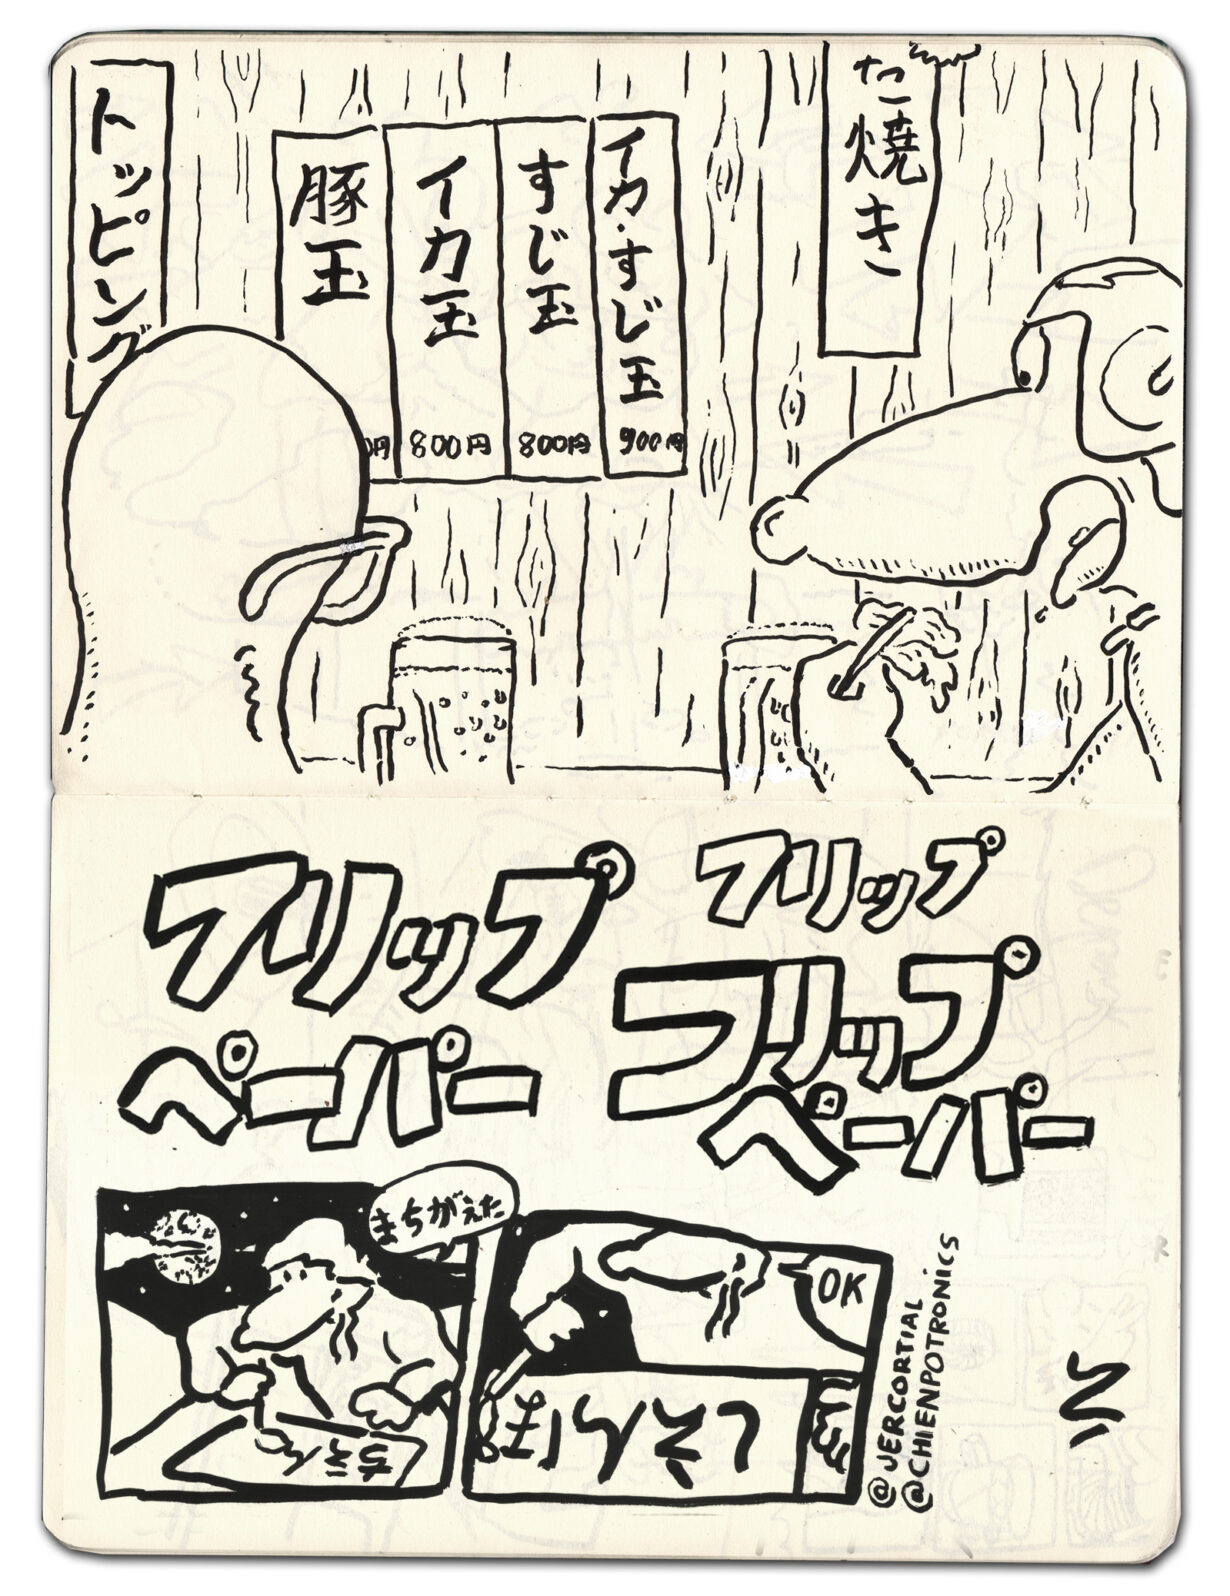 トッピング
豚玉
円
イカ玉
800円
すじ玉
800円
イカ・すじ玉
900円
たこ焼き
フリップ
ペーパー
フリップ
フリップ
ペーパー
まちがえた
OK
@JERCORTIAL
@CHIENPOTRONICS